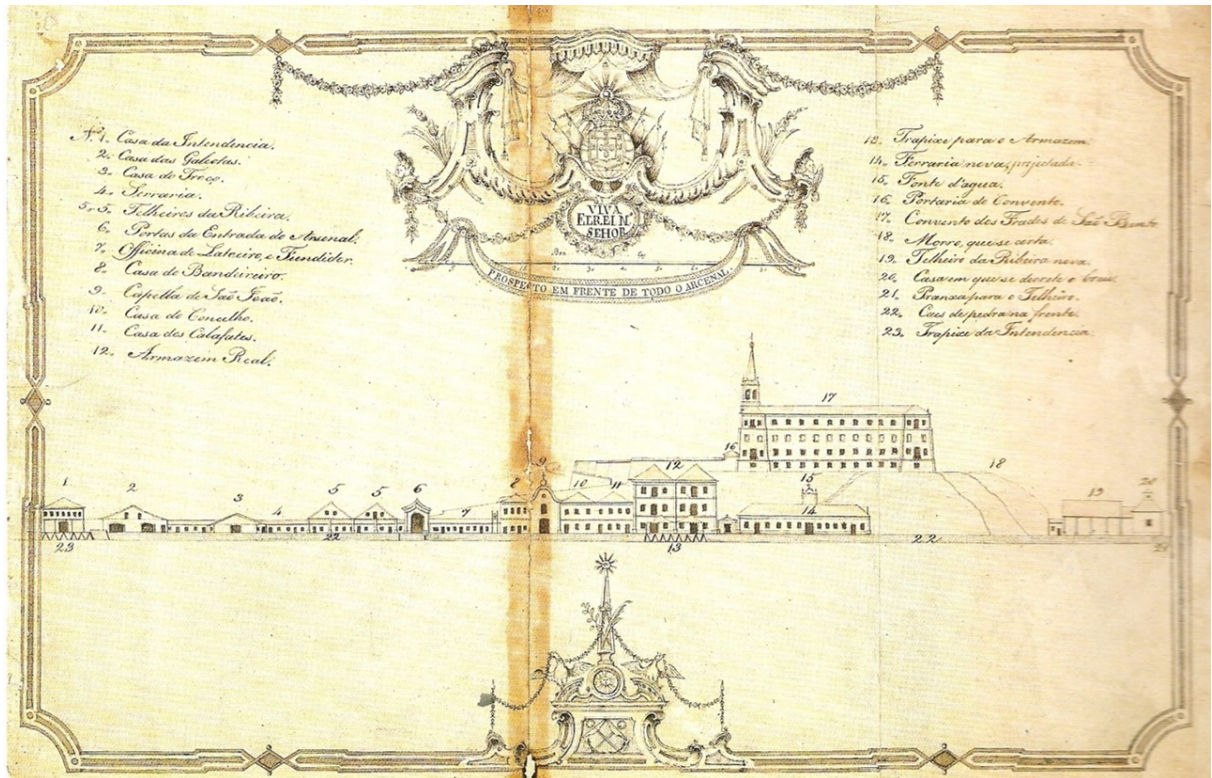 N. 1. Casa da Intendencia.
2. Casa das Galeotas.
3. Casa do Troço.
4. Serraria.
5, e 5. Telheiros da Ribeira.
6. Portas da Entrada do Arsenal.
7. Officina de Latoeiro, e Fundidor.
8. Casa do Bandeireiro.
9. Capella de São João.
10. Casa do Concelho.
11. Casa dos Calafates.
12. Armazem Real.
VIVA
ELREI N.
SEHOR
PROSPECTO EM FRENTE DE TODO O ARCENAL.
13. Trapixe para o Armazem.
14. Ferraria nova, projectada.
15. Fonte d'agoa.
16. Portaria do Convento.
17. Convento dos Frades de São Bento
18. Morro, que se corta.
19. Telheiro da Ribeira nova.
20. Casa em que se derrete o breu.
21. Pranxa para o Telheiro.
22. Caes de pedra na frente.
23. Trapixe da Intendencia.
17
16
9
12
18
15
20
19
1
2
3
4
5
5
6
7
8
10
11
14
23
22
13
22
21